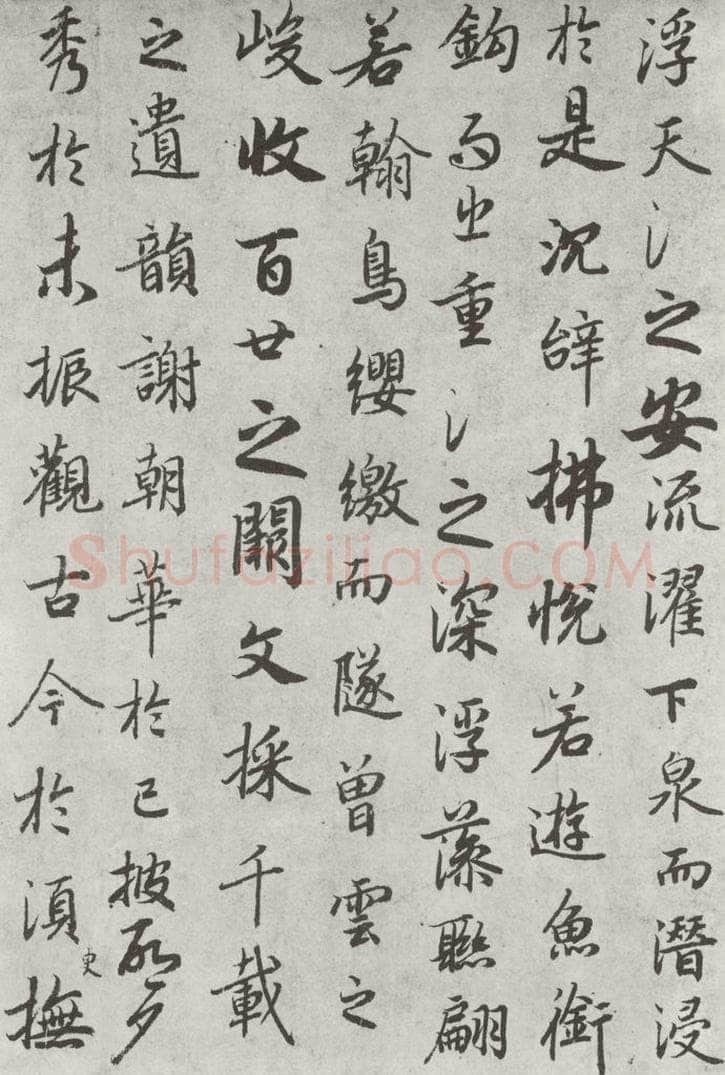 浮天氵之安流濯下泉而潛浸
於是沉辞拂悅若遊魚銜
鈎而出重氵之深浮藻聯翩
若翰鳥纓繳而隧曾雲之
峻收百廿之闕文採千載
之遺韻謝朝華於已披啓夕
秀於未振觀古今於須臾撫
Shufaziliao.COM